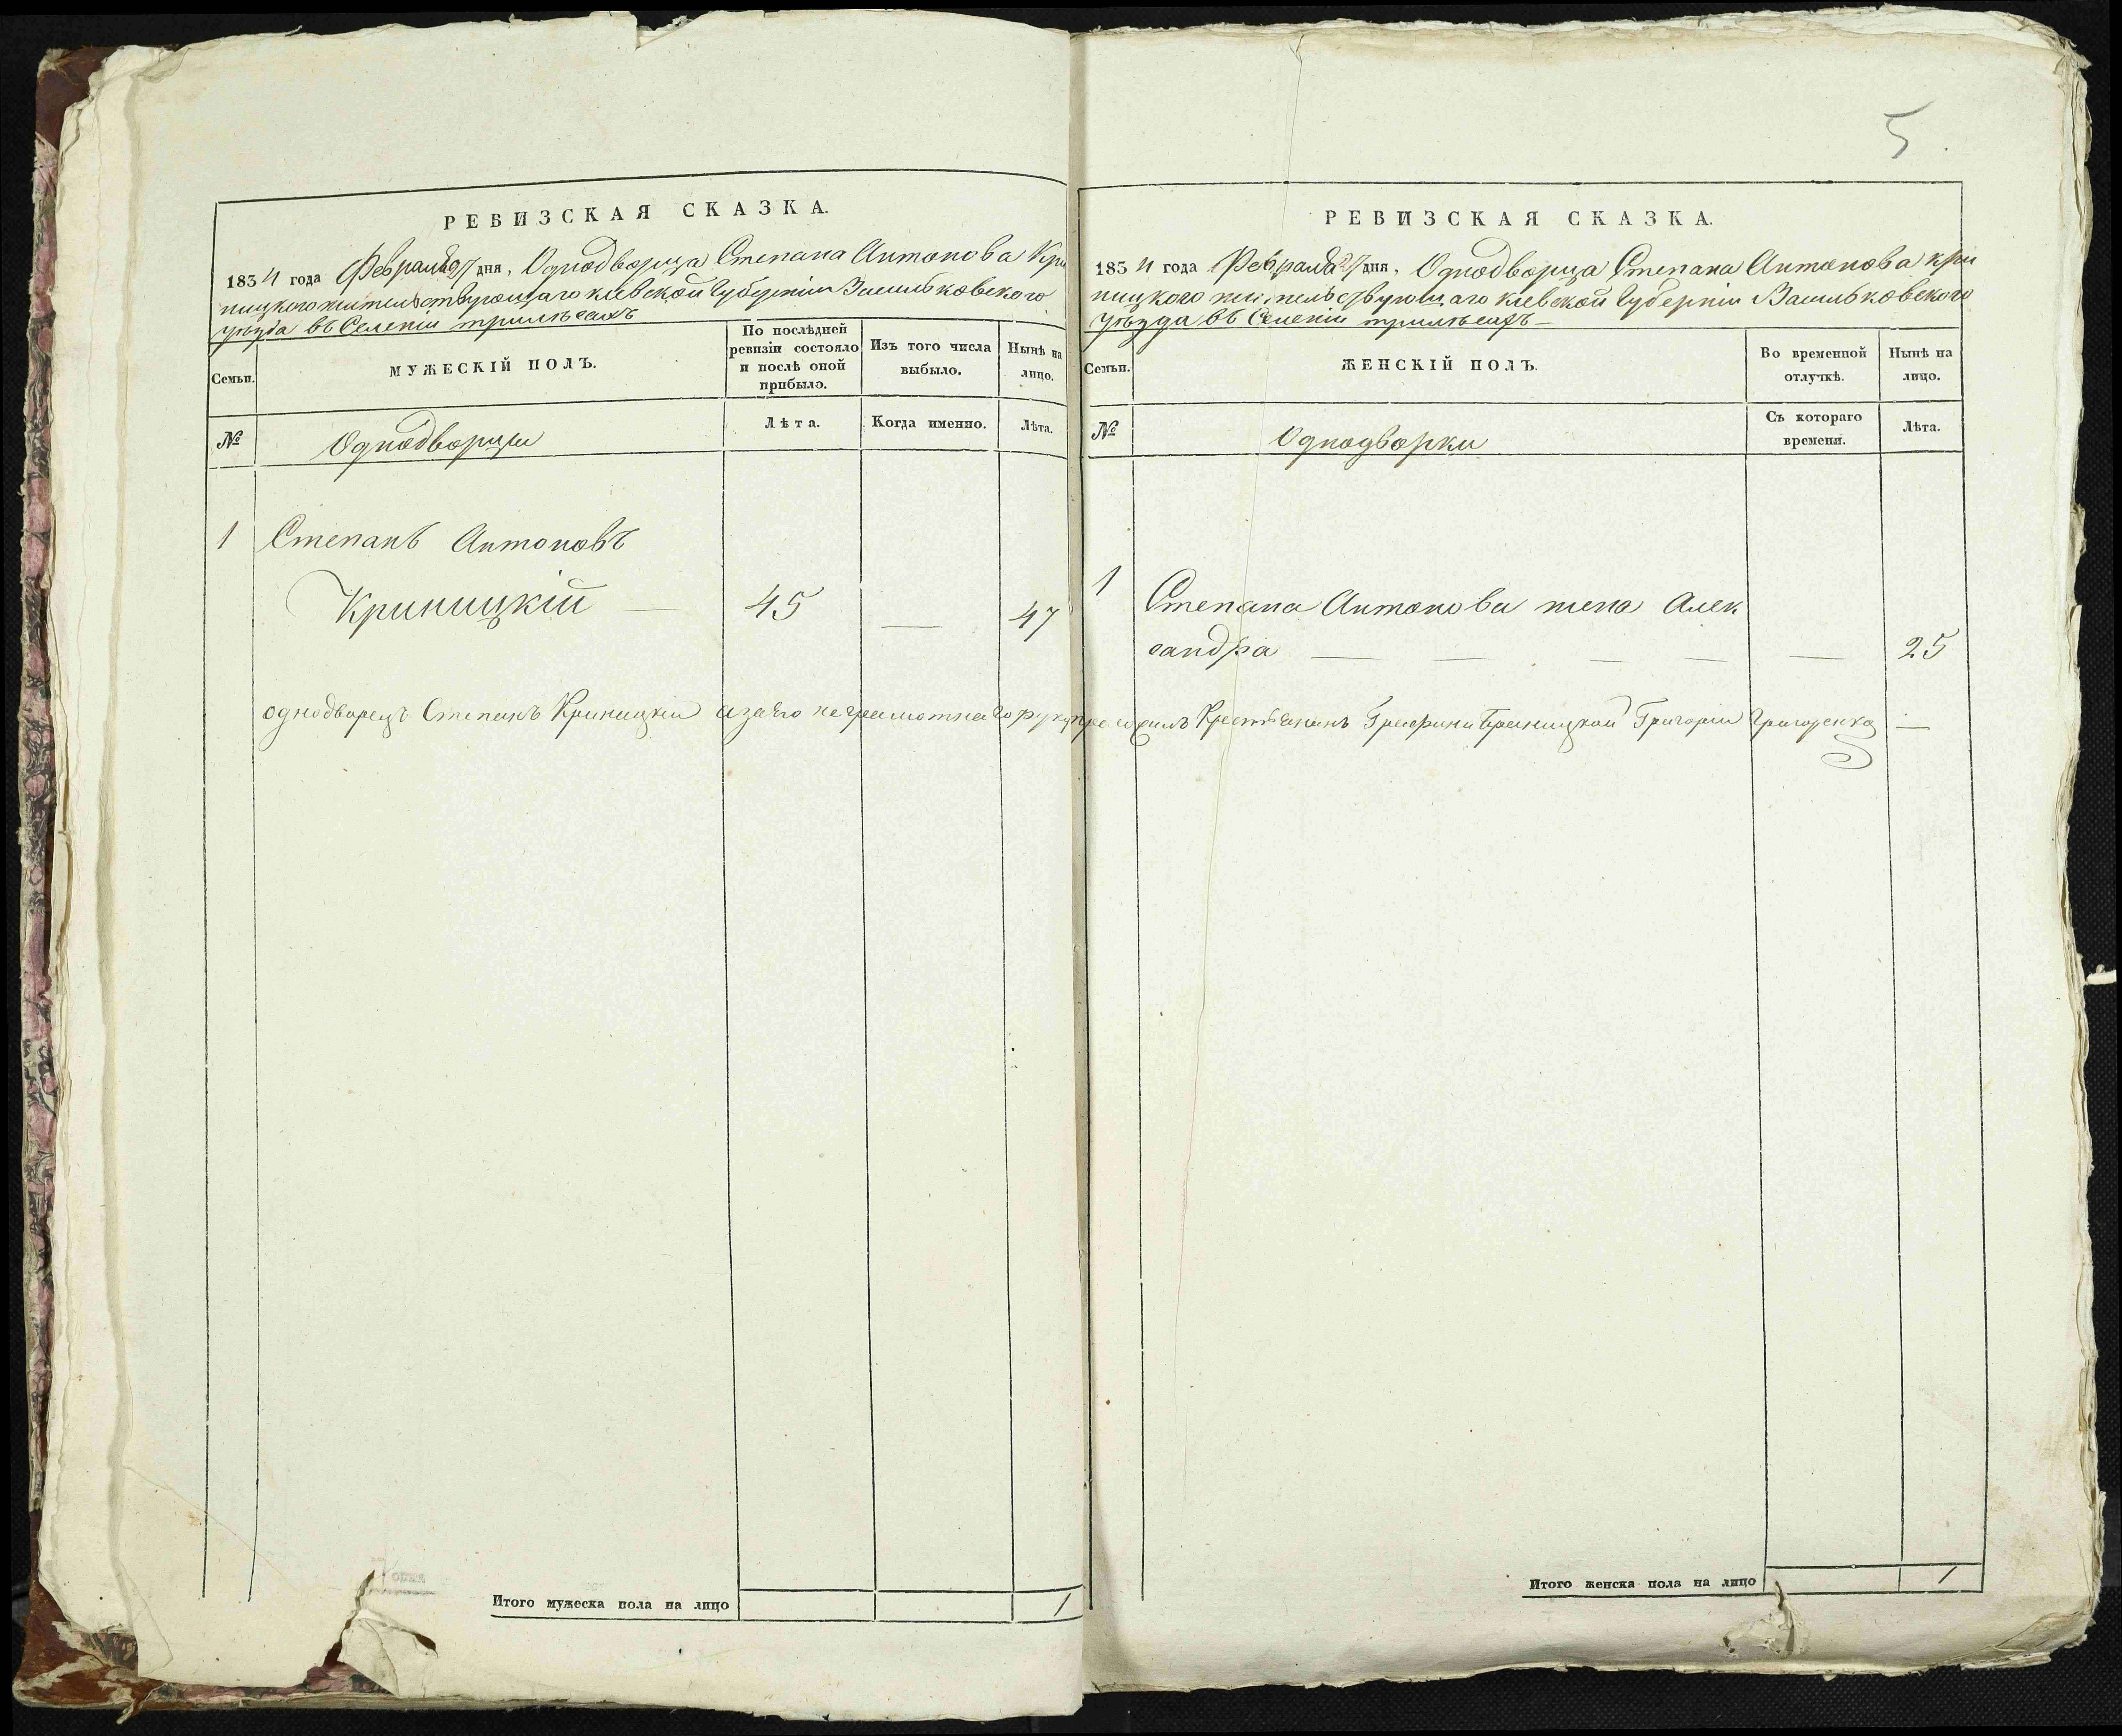 РЕВИЗСКАЯ СКАЗКА.
1834 года Февраля 27 дня, Однодворца Степана Антонова Кри
ницкого жительствующаго киевской губернии Васильковского
уезда въ Селении трилесахъ
Семьи.
МУЖЕСКІЙ ПОЛЪ.
По послѣдней
ревизіи состояло
и послѣ оной
прибыло.
Изъ того числа
выбыло.
Нынѣ на
лицо.
№
Однодворцы
Лѣта.
Когда именно.
Лѣта.
1 Степанъ Антоновъ
Криницкій — 45 — 47
однодворецъ Степанъ Криницкій а за его неграмотнаго руку приложилъ Крестьянинъ Графини Браницкой Григорий Григоренко —
Итого мужеска пола на лицо 1
5
РЕВИЗСКАЯ СКАЗКА.
1834 года Февраля 27 дня, Однодворца Степана Антонова кри
ницкого жительствующаго киевской губерніи Васильковского
уезда въ Селеніи трилесахъ —
Семьи.
ЖЕНСКІЙ ПОЛЪ.
Во временной
отлучкѣ.
Нынѣ на
лицо.
№
Однодворки
Съ котораго
времени.
Лѣта.
1 Степана Антонова жена Алек
сандра — — — — — 25
Итого женска пола на лицо 1